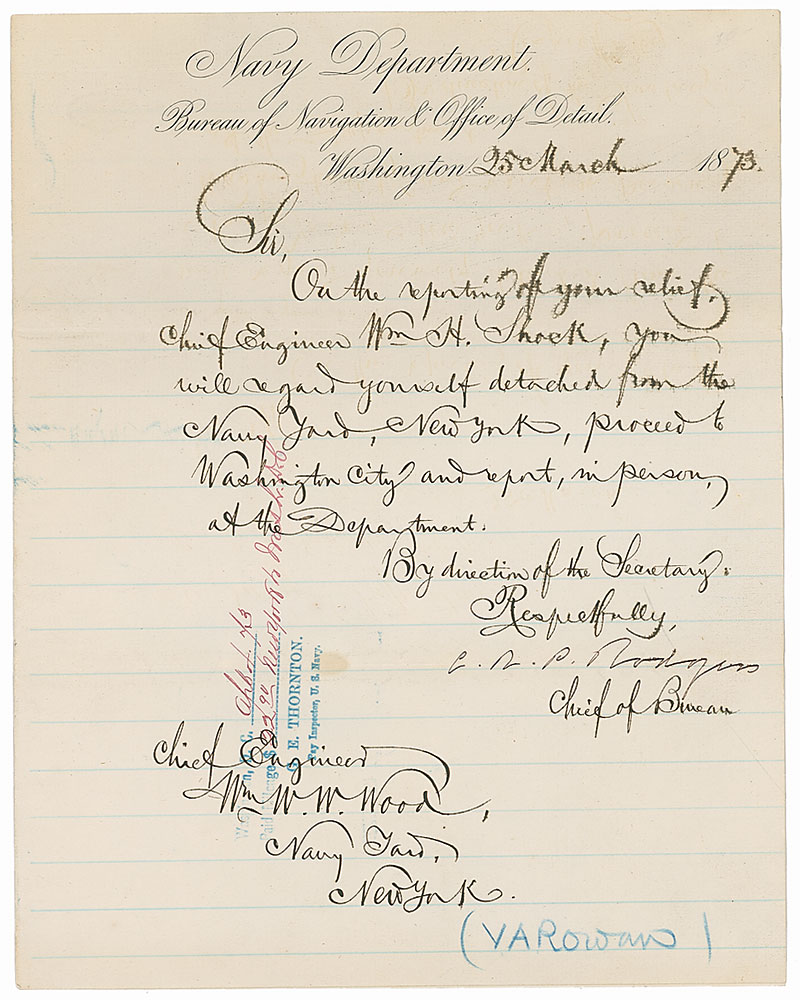 Navy Department.
Bureau of Navigation & Office of Detail.
Washington 25 March 1873.
Sir,
On the reporting of your relief,
Chief Engineer Wm H. Shock, you
will regard yourself detached from the
Navy Yard, New York, proceed to
Washington City and report, in person,
at the Department.
By direction of the Secretary:
Respectfully,
C. R. P. Rodgers
Chief of Bureau
Chief Engineer
Wm W. W. Wood,
Navy Yard,
New York.
New York to Wash
E. THORNTON.
Pay Inspector, U. S. Navy.
(VARowan)